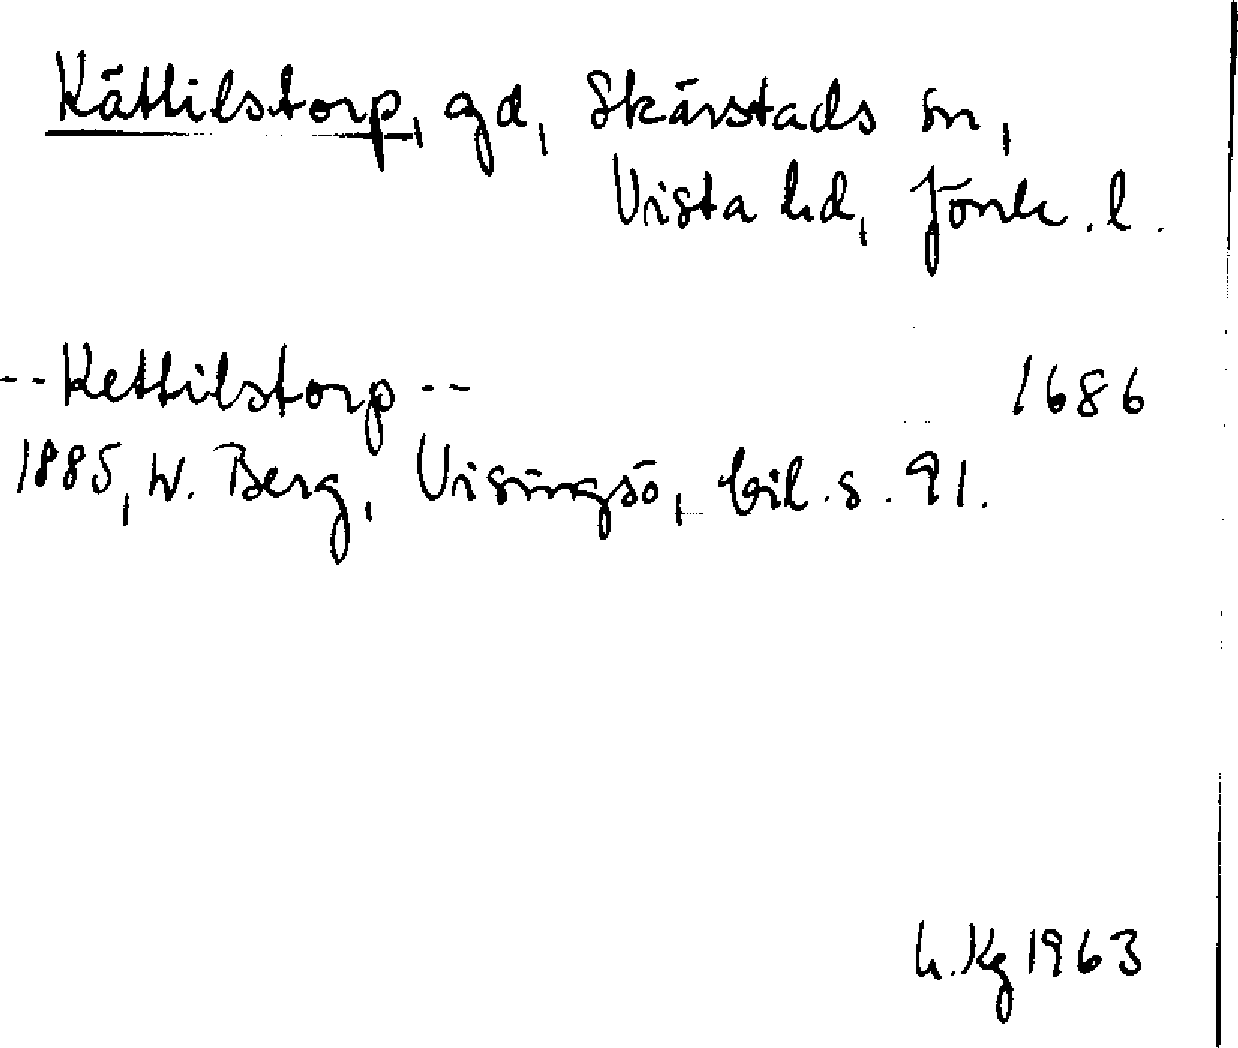 Kättilstorp, gd, Skärstads sn,
Vista hd, Jönk. l.
--Kettilstorp-- 1686
1885, W. Berg, Visingsö, bil. s. 91.
h. Kg 1963